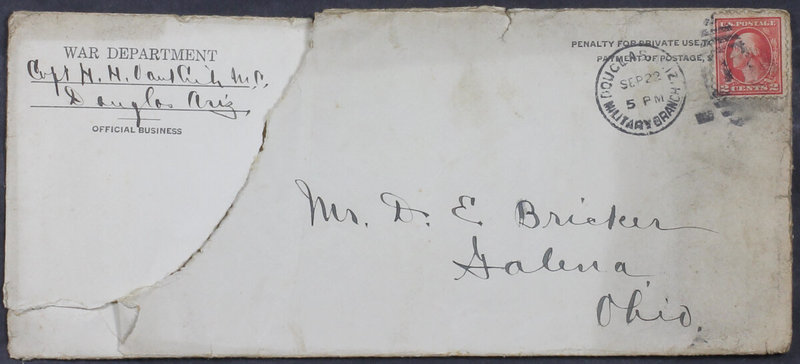 WAR DEPARTMENT
Capt H. H. M.C.
Douglas Ariz.
OFFICIAL BUSINESS
PENALTY FOR PRIVATE USE TO
PAYMENT OF POSTAGE, $
DOUGLAS ARIZ.
SEP 22
5 PM
MILITARY BRANCH
U.S. POSTAGE
2 CENTS 2
Mr. D. E. Bricker
Galena
Ohio.